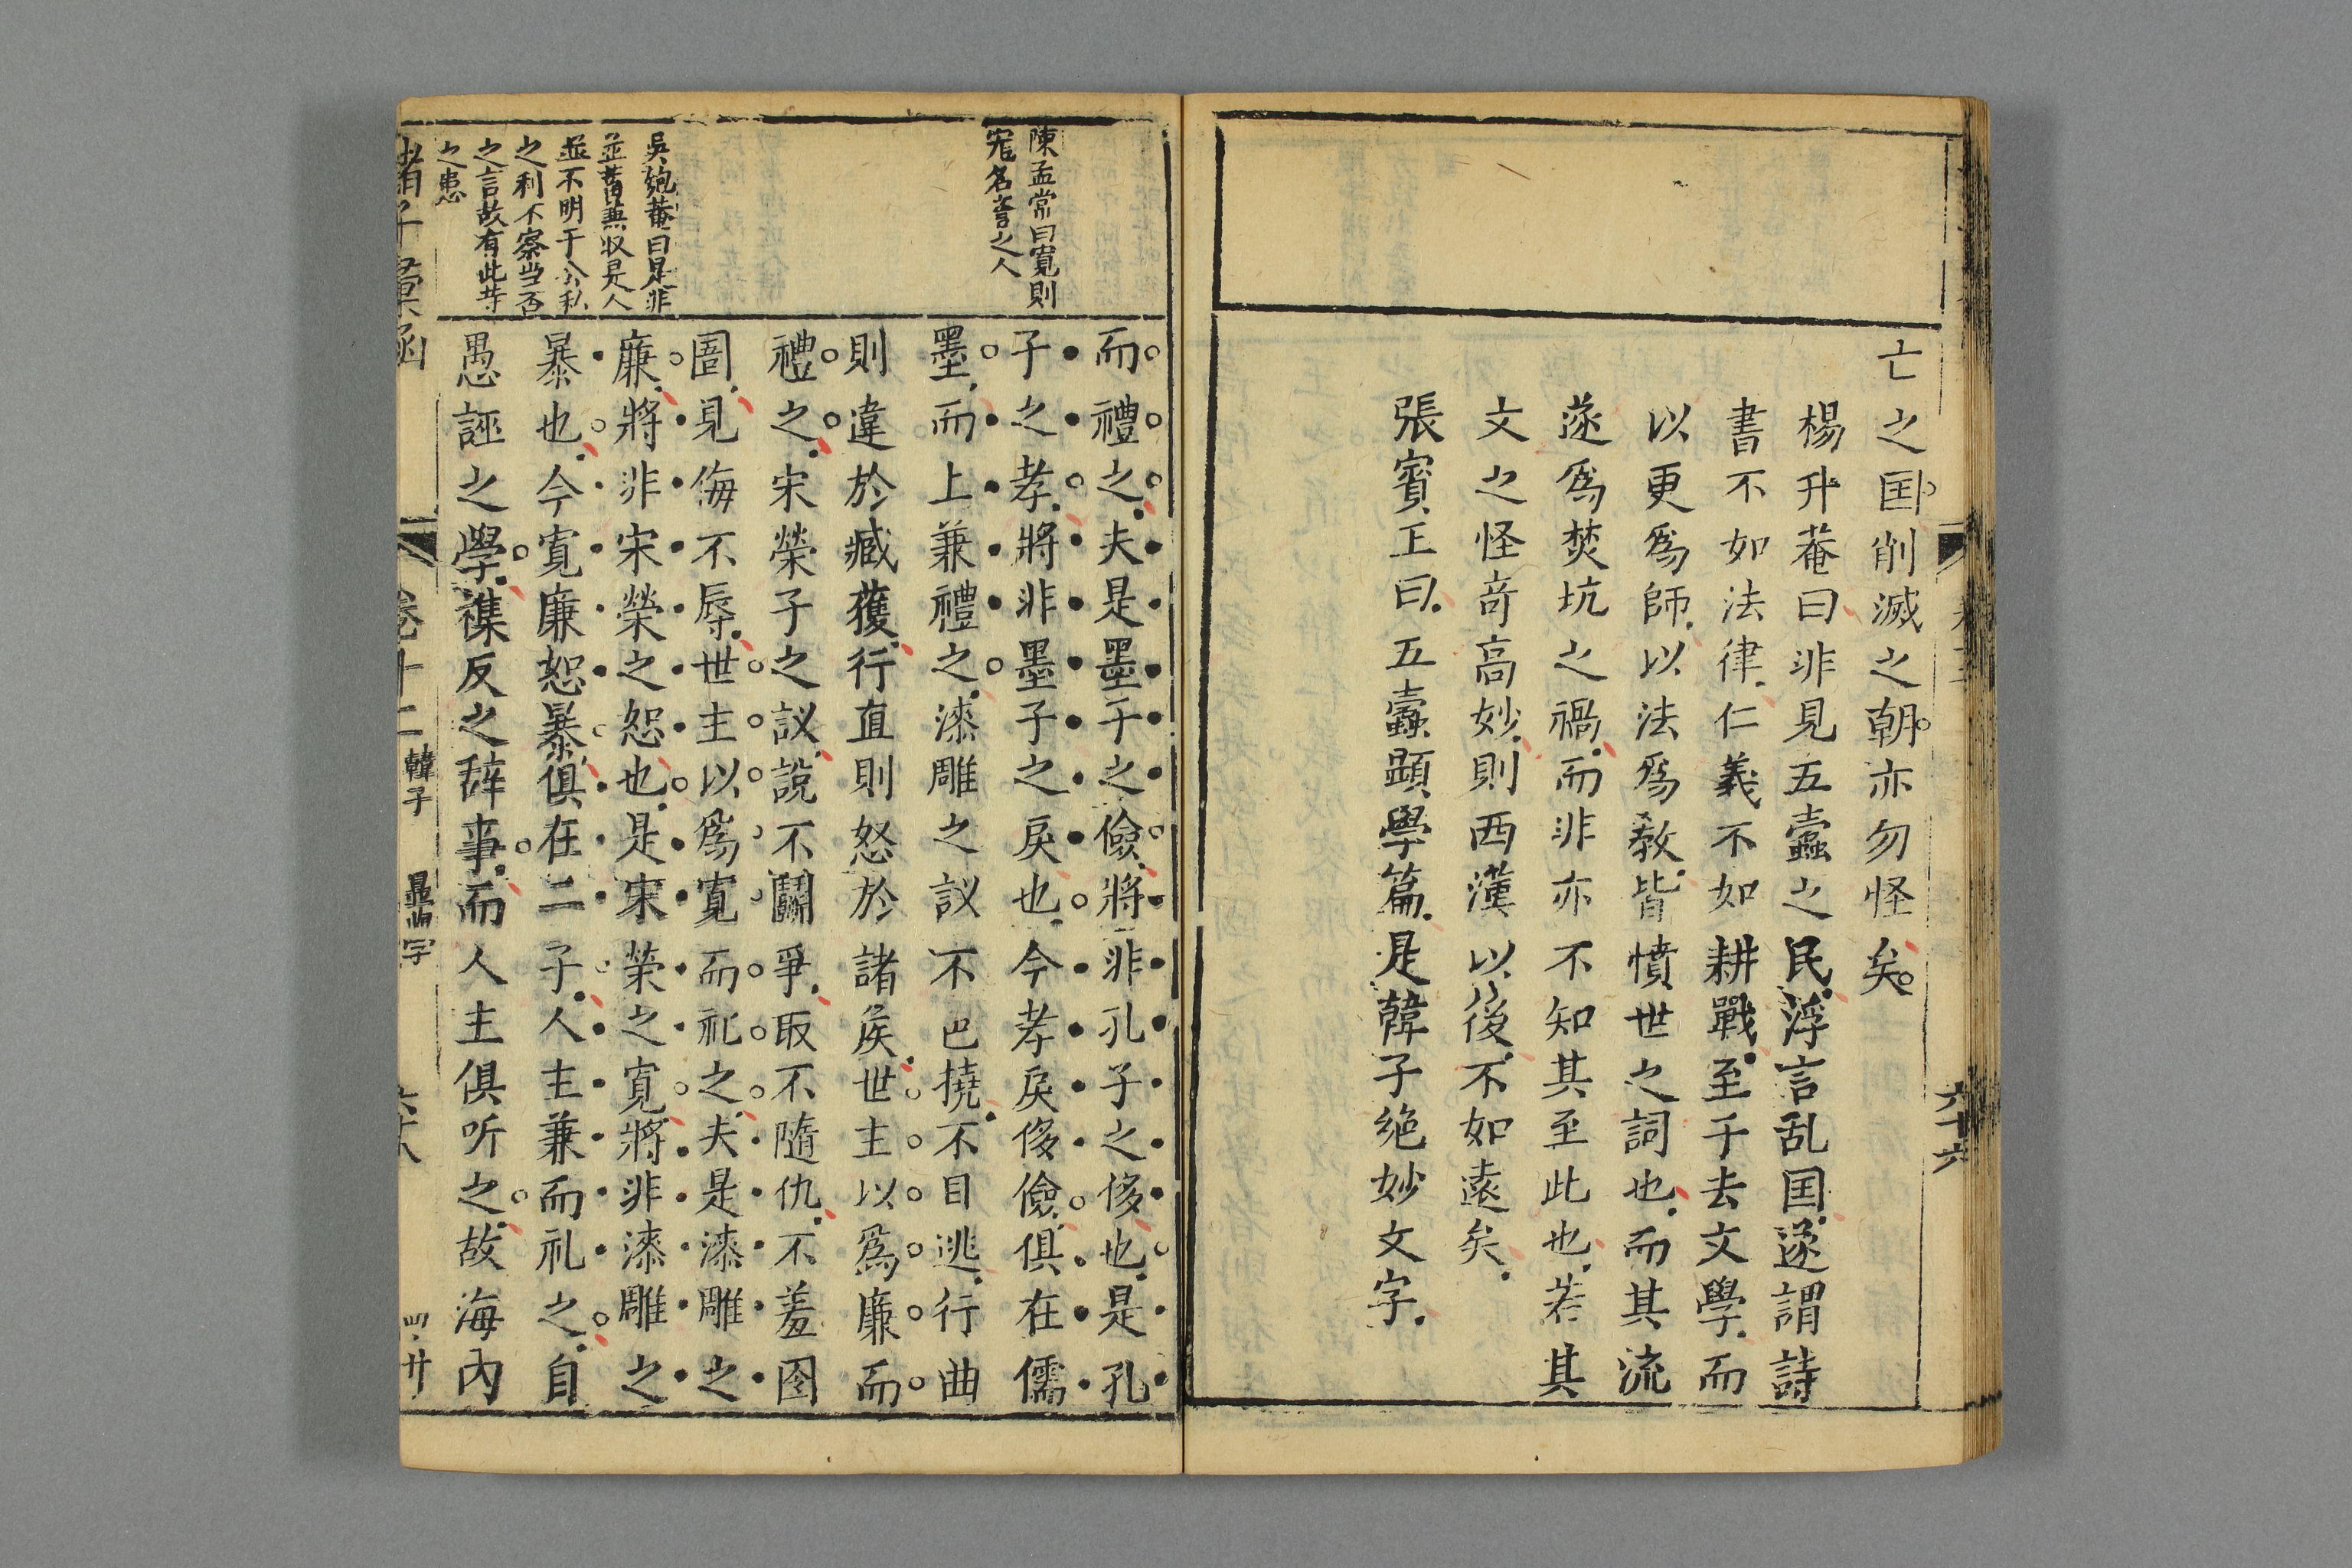 亡之囯削滅之朝亦勿怪矣
楊升菴曰非見五蠹之民浮言乱囯遂謂詩
書不如法律仁義不如耕戰至于去文學而
以更爲師以法爲教皆憤世之詞也而其流
遂爲焚坑之禍而非亦不知其至此也若其
文之怪奇高妙則西漢以後不如遠矣
張賓王曰五蠹顕學篇是韓子絶妙文字
六十六
陳孟常曰寛則
寵名誉之人
吳匏菴曰是非
並蓄兼収是人
並不明于公私
之利不察当否
之言故有此等
之患
而禮之夫是墨子之儉將非孔子之侈也是孔
子之孝將非墨子之戾也今孝戾侈儉俱在儒
墨而上兼禮之漆雕之議不色撓不目逃行曲
則違於臧獲行直則怒於諸侯世主以爲廉而
禮之宋榮子之議說不鬭爭取不隨仇不羞囹
圄見侮不辱世主以爲寛而礼之夫是漆雕之
廉將非宋榮之恕也是宋榮之寛將非漆雕之
暴也今寛廉恕暴俱在二子人主兼而礼之自
愚誣之學襍反之辞事而人主俱听之故海內
諸子彙函
卷十二
韓子